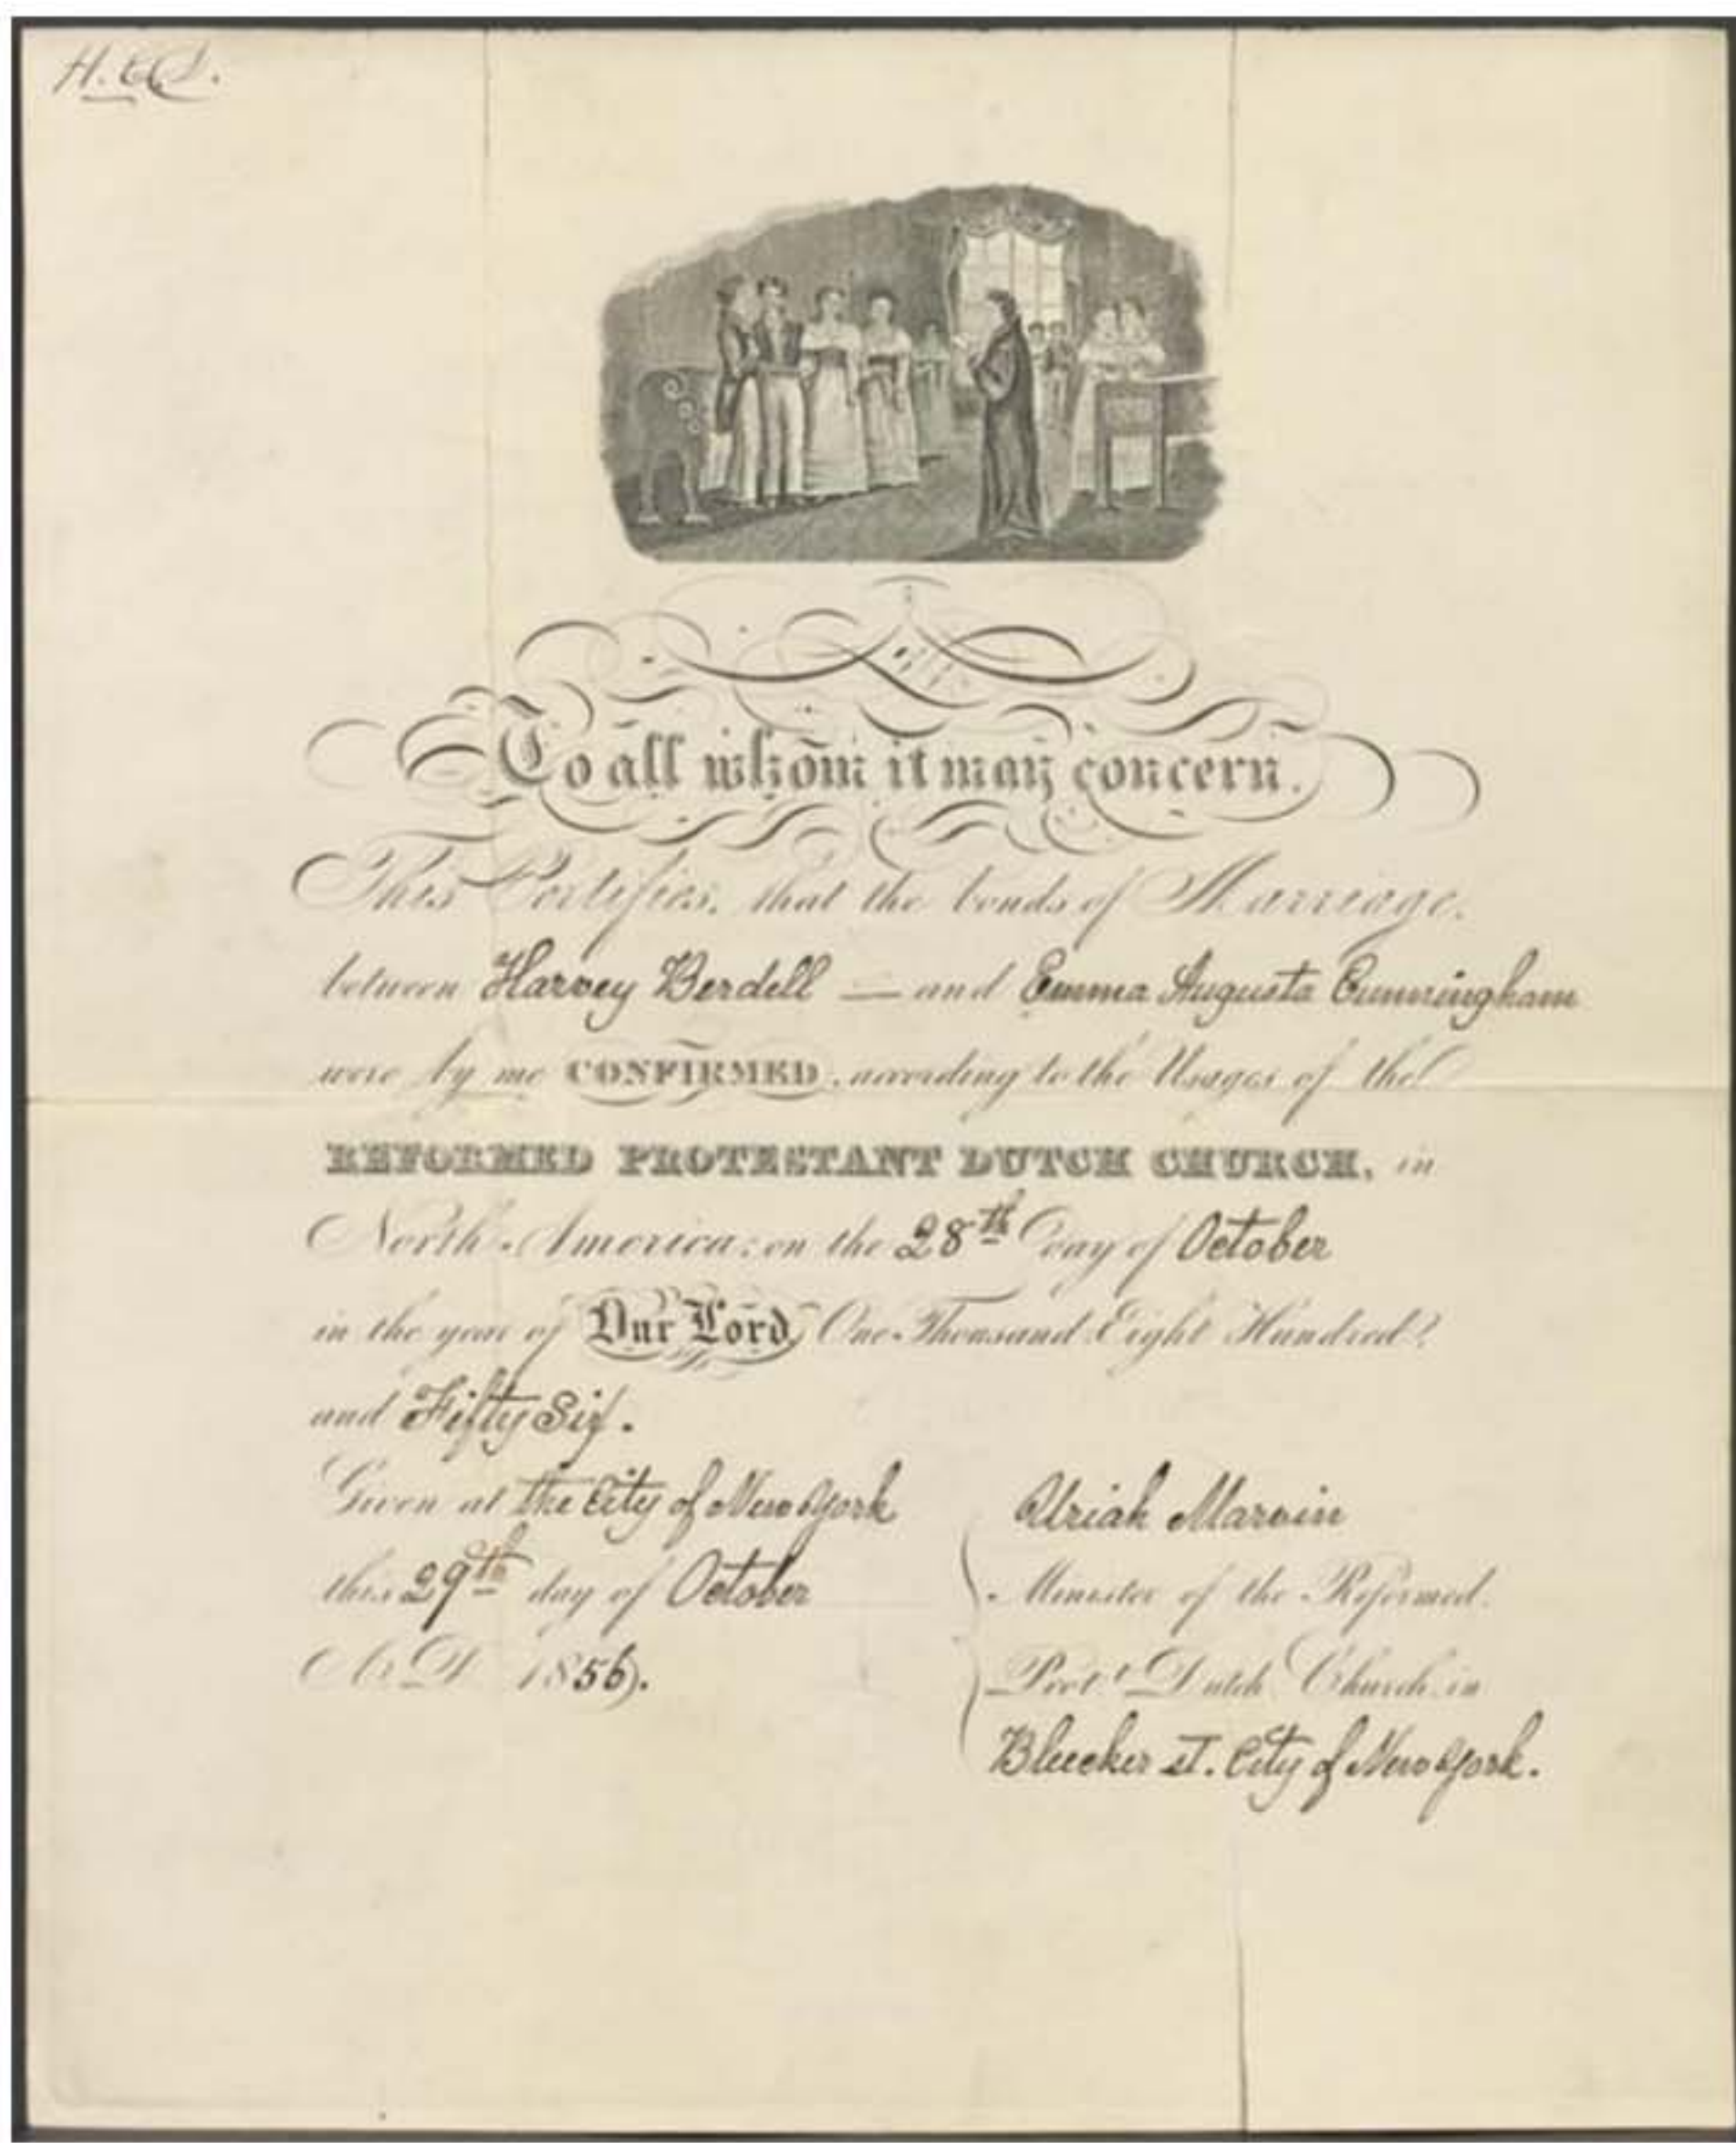 To all whom it may concern.
This Certifies, that the bonds of Marriage,
between Harvey Berdell — and Emma Augusta Cunningham
were by me CONFIRMED, according to the Usages of the
REFORMED PROTESTANT DUTCH CHURCH, in
North America; on the 28th day of October
in the year of Our Lord One Thousand Eight Hundred
and Fifty Six.
Given at the City of New York
this 29th day of October
A.D. 1856.
Uriah Marvin
Minister of the Reformed
Prot.t Dutch Church in
Bleecker st. City of New York.